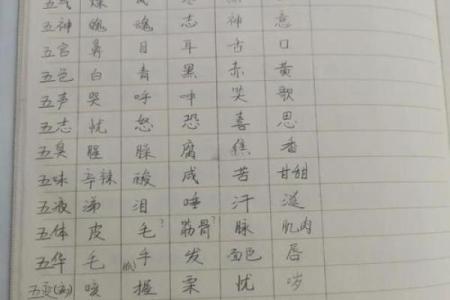 五气 燥
五神 魄 魂 志 神 意
五官 鼻 目 耳 舌 口
五色 白 青 黑 赤 黄
五声 哭 呼 呻 笑 歌
五志 忧 怒 恐 喜 思
五臭 腥 臊 腐 焦 香
五味 辛辣 酸 咸 苦 甘甜
五液 涕 泪 唾 汗 涎
五体 皮 毛? 筋骨? 脉 肌肉
五华 毛 手 发 面色 唇
五变 咳 握 栗 忧 哕